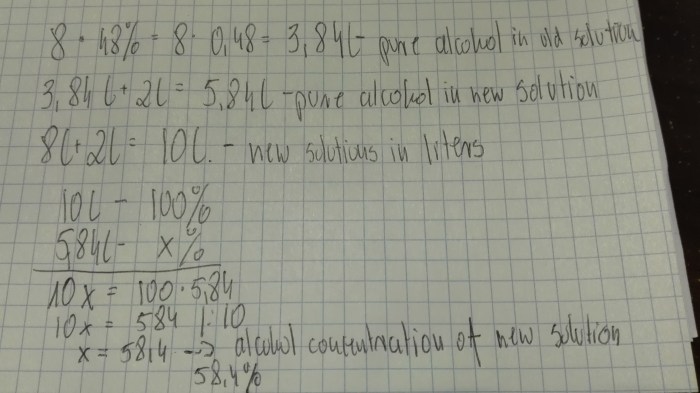 8 · 48% = 8 · 0,48 = 3,84l - pure alcohol in old solution
3,84l + 2l = 5,84l - pure alcohol in new solution
8l + 2l = 10l. - new solutions in liters
10l - 100%
5,84l - x%
10x = 100 · 5,84
10x = 584 |: 10
x = 58,4 --> alcohol concentration of new solution
58,4%